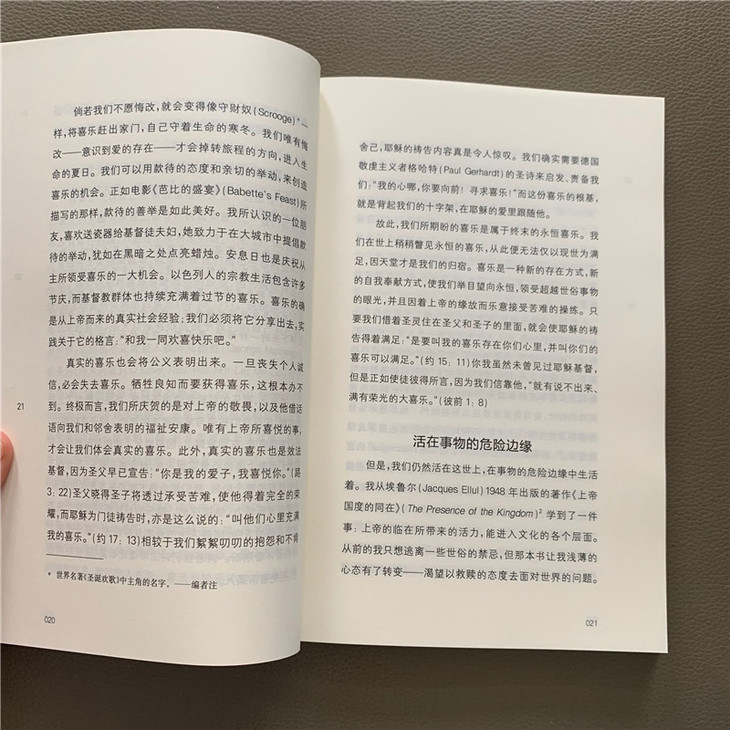 倘若我们不愿悔改，就会变得像守财奴(Scrooge)*一
样，将喜乐赶出家门，自己守着生命的寒冬。我们唯有悔
改——意识到爱的存在——才会掉转旅程的方向，进入生
命的夏日。我们可以用款待的态度和亲切的举动，来创造
喜乐的机会。正如电影《芭比的盛宴》(Babette's Feast)所
描写的那样，款待的善举是如此美好。我所认识的一位朋
友，喜欢送瓷器给基督徒夫妇，她致力于在大城市中提倡款
待的举动，犹如在黑暗之处点亮蜡烛。安息日也是庆祝从
主所领受喜乐的一大机会。以色列人的宗教生活包含许多
节庆，而基督教群体也持续充满着过节的喜乐。喜乐的确
是从上帝而来的真实社会经验；我们必须将它分享出去，实
践关于它的格言：“和我一同欢喜快乐吧。”
真实的喜乐也会将公义表明出来。一旦丧失个人诚
信，必会失去喜乐。牺牲良知而要获得喜乐，这根本办不
到。终极而言，我们所庆贺的是对上帝的敬畏，以及他借话
语向我们和邻舍表明的福祉安康。唯有上帝所喜悦的事，
才会让我们体会真实的喜乐。此外，真实的喜乐也是效法
基督，因为圣父早已宣告：“你是我的爱子，我喜悦你。”(路
3：22)圣父晓得圣子将透过承受苦难，使他得着完全的荣
耀，而耶稣为门徒祷告时，亦是这么说的：“叫他们心里充满
我的喜乐。”(约 17：13)相较于我们絮絮叨叨的抱怨和不肯
* 世界名著《圣诞欢歌》中主角的名字。——编者注
21
020
舍己，耶稣的祷告内容真是令人惊叹。我们确实需要德国
敬虔主义者格哈特(Paul Gerhardt)的圣诗来启发、责备我
们：“我的心哪，你要向前！寻求喜乐！”而这份喜乐的根基，
就是背起我们的十字架，在耶稣的爱里跟随他。
故此，我们所期盼的喜乐是属于终末的永恒喜乐。我
们在世上稍稍瞥见永恒的喜乐，从此便无法仅以现世为满
足，因天堂才是我们的归宿。喜乐是一种新的存在方式，新
的自我奉献方式，使我们举目望向永恒，领受超越世俗事物
的眼光，并且因着上帝的缘故而乐意接受苦难的操练。只
要我们借着圣灵住在圣父和圣子的里面，就会使耶稣的祷
告得着满足：“是要叫我的喜乐存在你们心里，并叫你们的
喜乐可以满足。”(约 15：11)你我虽然未曾见过耶稣基督，
但是正如使徒彼得所言，因为我们信靠他，“就有说不出来、
满有荣光的大喜乐。”(彼前 1：8)
活在事物的危险边缘
但是，我们仍然活在这世上，在事物的危险边缘中生活
着。我从埃鲁尔(Jacques Ellul) 1948 年出版的著作《上帝
国度的同在》(The Presence of the Kingdom)2 学到了一件
事：上帝的临在所带来的活力，能进入文化的各个层面。
从前的我只想逃离一些世俗的禁忌，但那本书让我浅薄的
心态有了转变——渴望以救赎的态度去面对世界的问题。
021